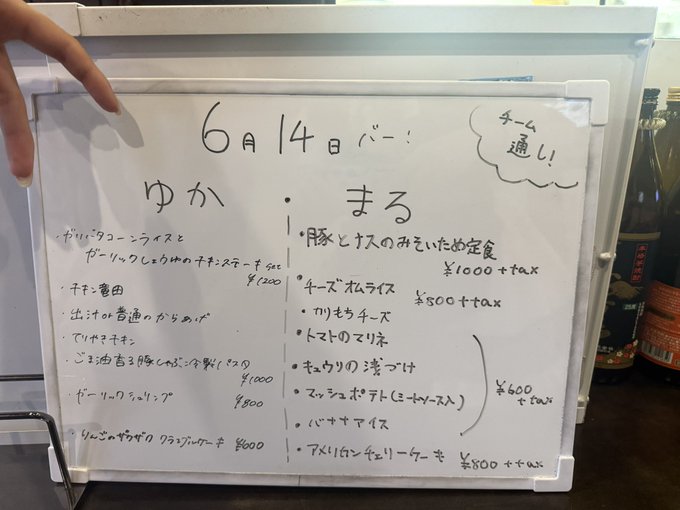 6月14日 バー!
チーム
通し!
ゆか・まる
・ガリバタコーンライスと
ガーリックしょうゆのチキンステーキ set
¥1200
・チキン竜田
・出汁or普通のからあげ
・てりやきチキン
・ごま油香る豚しゃぶ冷製パスタ
¥1000
・ガーリックシュリンプ
¥800
・りんごのザクザク クランブルケーキ ¥600
・豚とナスのみそいため定食
¥1000+tax
・チーズオムライス ¥800+tax
・カリもちチーズ
・トマトのマリネ
・キュウリの浅づけ
・マッシュポテト(ミートソース入)
・バナナアイス
¥600
+tax
・アメリカンチェリーケーキ ¥800+tax
本格芋焼酎